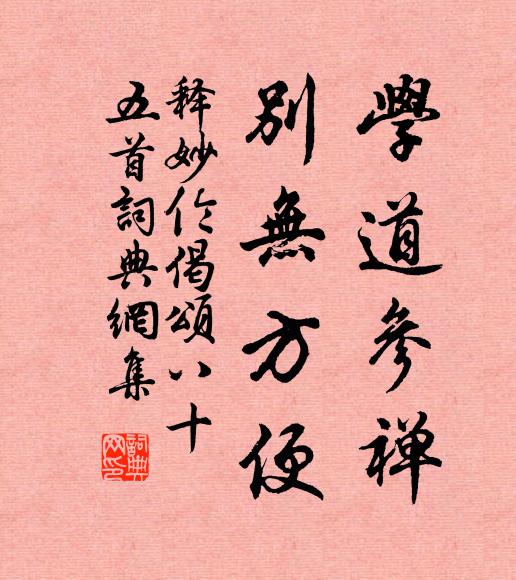 學道參禅
別無方便
释妙伦偈頌八十
五首詞典網集
詞典
网印